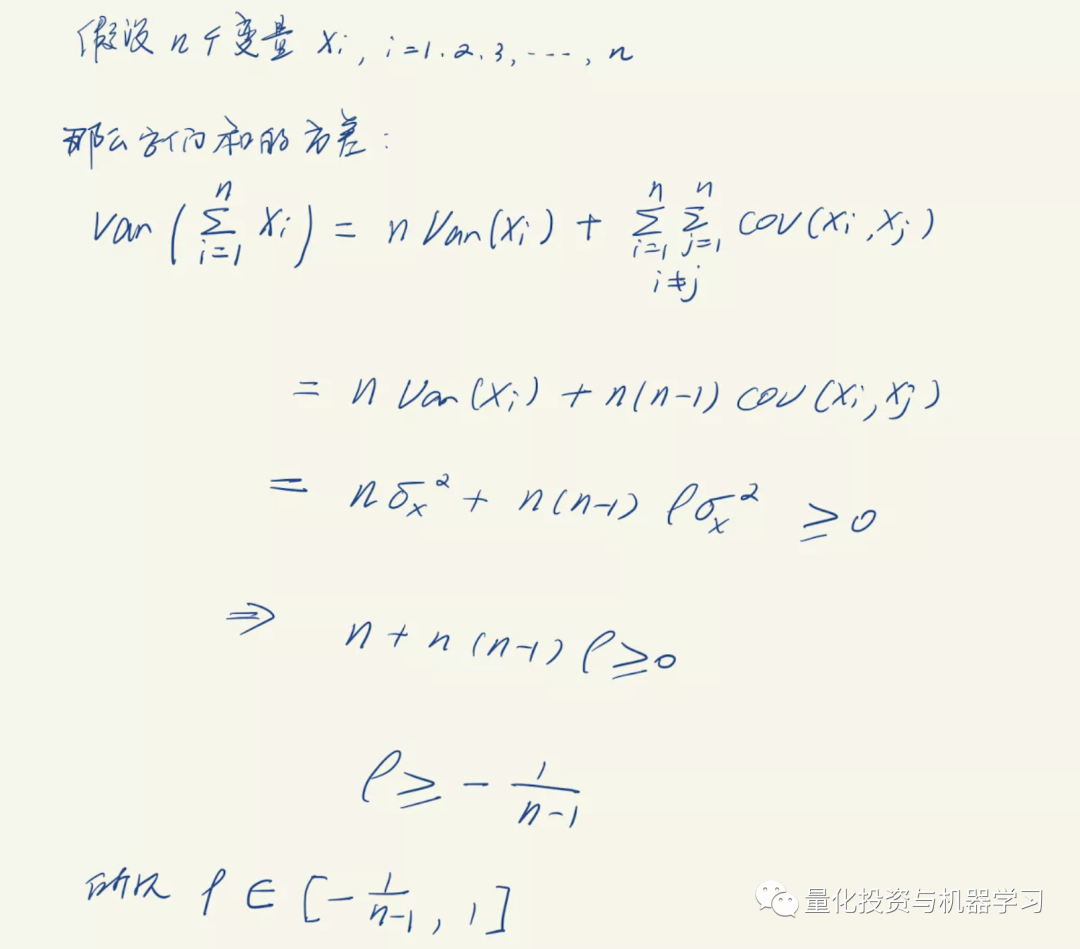 假设 n个变量 Xi, i=1.2.3,----, n
那么它们和的方差:
Var(∑_{i=1}^{n} Xi) = n Var(Xi) + ∑_{i=1}^{n} ∑_{j=1}^{n} COV(Xi,Xj)
i≠j
= n Var(Xi) + n(n-1) COV(Xi,Xj)
= nσx² + n(n-1) ρσx² ≥0
⇒ n+n(n-1)ρ≥0
ρ≥ - 1/(n-1)
所以 ρ∈[-1/(n-1), 1]
量化投资与机器学习